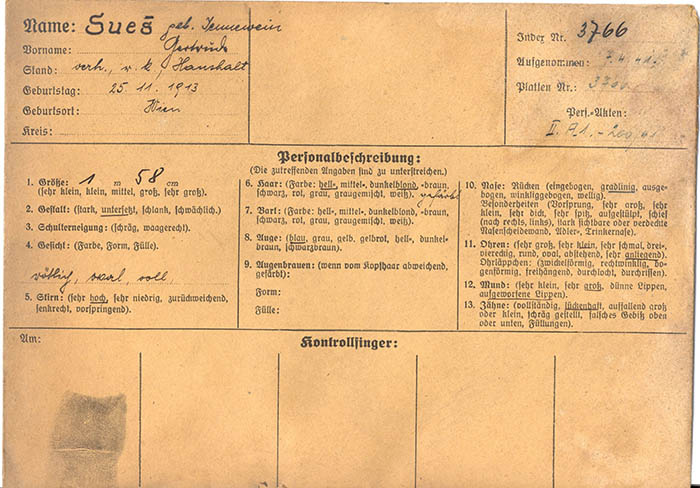 Name: Sues geb. Jennewein
Vorname: Gertrude
Stand: verh., r. k., Haushalt
Geburtstag: 25. 11. 1913
Geburtsort: Wien
Kreis:
Index Nr. 3766
Aufgenommen: 7. 4. 41.
Platten Nr.: 3766
Pers.-Akten:
II A1.-200/41
Personalbeschreibung:
(Die zutreffenden Angaben sind zu unterstreichen.)
1. Größe: 1 m 58 cm
(sehr klein, klein, mittel, groß, sehr groß).
2. Gestalt: (stark, untersetzt, schlank, schwächlich).
3. Schulterneigung: (schräg, waagerecht).
4. Gesicht: (Farbe, Form, Fülle).
rötlich, oval, voll,
5. Stirn: (sehr hoch, sehr niedrig, zurückweichend,
senkrecht, vorspringend).
6. Haar: (Farbe: hell-, mittel-, dunkelblond, -braun,
schwarz, rot, grau, graugemischt, weiß). gefärbt
7. Bart: (Farbe: hell-, mittel-, dunkelblond, -braun,
schwarz, rot, grau, graugemischt, weiß).
8. Auge: (blau, grau, gelb, gelbrot, hell-, dunkel-
braun, schwarzbraun).
9. Augenbrauen: (wenn vom Kopfhaar abweichend,
gefärbt):
Form:
Fülle:
10. Nase: Rücken (eingebogen, gradlinig, ausge-
bogen, winkliggebogen, wellig).
Besonderheiten (Vorsprung, sehr groß, sehr
klein, sehr dick, sehr spitz, aufgestülpt, schief
(nach rechts, links), stark sichtbare oder verdeckte
Nasenscheidewand, Adler-, Trinkernase).
11. Ohren: (sehr groß, sehr klein, sehr schmal, drei-,
viereckig, rund, oval, abstehend, sehr anliegend).
Ohrläppchen: (zwickelförmig, rechtwinklig, bo-
genförmig, freihängend, durchlocht, durchrissen).
12. Mund: (sehr klein, sehr groß, dünne Lippen,
aufgeworfene Lippen).
13. Zähne: (vollständig, lückenhaft, auffallend groß
oder klein, schräg gestellt, falsches Gebiß oben
oder unten, Füllungen).
Am:
Kontrollfinger: